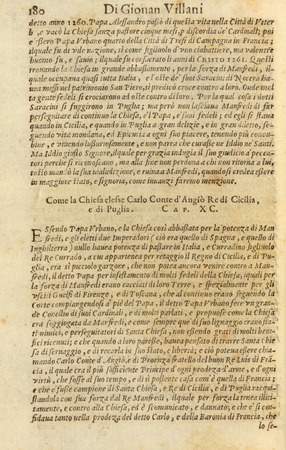 180 Di Giouan Villani
detto anno 1260. Papa Alessandro passò di questa vita nella Città di Viter
b, e vacò la Chiesa sanza pastore cinque mesi, p discordia de Cardinali; poi
e' lessero Papa Vrbano quarto della Città di Tresi di Campagna in Francia;
ilquale fu di vile nazione, sì come figliuolo d'vno ciabattiere, ma valente
huomo fu, e sauio; ilquale fu consecrato li anni di CRISTO 1261. Questi
trouando la Chiesa in grande abbassamento, per la forza di Manfredi, il-
quale occupaua quasi tutta Italia, e l'oste de' suoi Saracini di Nocera ha-
uea messa nel patrimonio San Piero, si predicò croce contro a loro. Onde mol
ta gente fedele si crociarono ad oste contro di loro. Per la qual cosa i detti
Saracini si fuggirono in Puglia; ma però non lasciaua Manfredi di far
perseguitare di continuo la Chiesa, e'l Papa, e' suoi fedeli; ed egli si staua
quando in Cicilia, e quando in Puglia a gran delizie, e in gran diletto, se-
guendo vita mondana, ed Epicura e ogni suo piacere, tenendo più concu-
bine, e viuendo lussuriosamente, e non parea che curasse nè Iddio ne' Santi.
Ma Iddio giusto Signore, ilquale per grazia indugia il suo giudicio a' pecca-
tori perche si riconoscano, ma alla fine non perdona a chi non ritorna a lui,
tosto mandò la sua maladizione, e ruina a Manfredi, quando si credea essere
in maggiore stato, e signoria, come innanzi faremo menzione.
Come la Chiesa elesse Carlo Conte d'Angiò Re di Cicilia,
e di Puglia. CAP. XC.
ESsendo Papa Vrbano, e la Chiesa così abbassata per la potenza di Man
fredi, e gli eletti due Imperadori (ciò era quello di Spagna, e quello di
Inghilterra) nulla hauea potenza di passare in Italia, e Curradino figliuolo
del Re Currado, a cui appartenea per retaggio il Regno di Cicilia, e di Pu
glia, era sì piccolo garzone, che non potea ancora venire contro a Man-
fredi, il detto Papa per infestamento di molti fedeli della Chiesa, iquali per
la forza di Manfredi erano cacciati di loro Terre, e spezialmente per gli
vsciti Guelfi di Firenze, e di Toscana, che di continuo erano seguendo la
Corte compiangendosi a piè del Papa, il detto Papa Vrbano fece vn gran-
de Concilio de' suoi Cardinali, e di molti parlati, e propuose come la Chiesa
era soggiogata da Manfredi, e come sempre que' di suo lignaggio erano sta-
ti nimici, e perseguitatori di Santa Chiesa, non essendo grati di molti bene-
fici riceuuti; e che quando a loro paresse, hauea pensato di trarre Santa Chie
sa di seruaggio, e di recarla in suo stato, e libertà; e ciò potea essere chia-
mando Carlo Conte d'Angiò, e di Prouenza fratello del buon Re Luis di Fran
cia, il quale era il più sofficiente Principe d'ogni prodezza d'arme, e d'ogni
virtù, che fosse al suo tempo, e di sì possente casa com'è quella di Francia;
e che e' fusse campione di Santa Chiesa, e Re di Cicilia, e di Puglia racqui-
standola per forza dal Re Manfredi, il quale per forza la tenea illici-
tamente, e contro alla Chiesa, ed è scomunicato, e dannato; e che e' si con-
fidaua tanto nella prodezza del detto Carlo, e della Baronia di Francia, che
lo se-